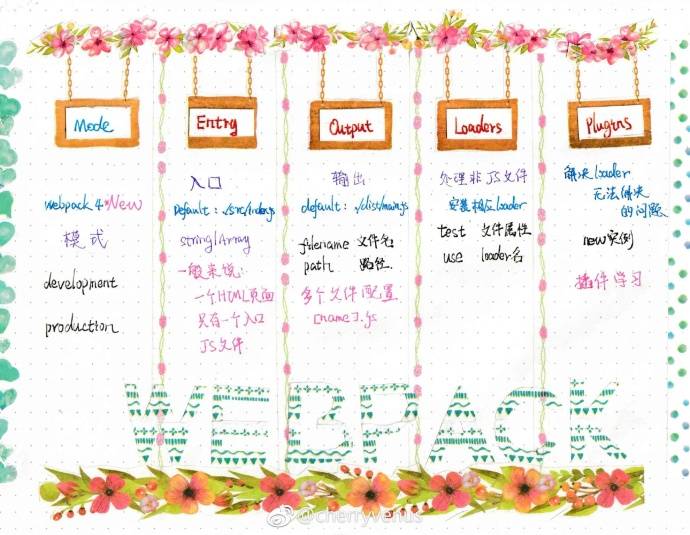 Mode
webpack 4 *New
模式
development
production
Entry
入口
Default: ./src/index.js
string|Array
一般来说:
一个HTML页面
只有一个入口
JS文件
Output
输出
default: ./dist/main.js
filename 文件名
path 路径.
多个文件配置
[name].js
Loaders
处理非JS文件
安装相应loader
test 文件属性
use loader名
Plugins
解决loader
无法解决
的问题
new实例
插件学习
WEBPACK
@cherryvenus